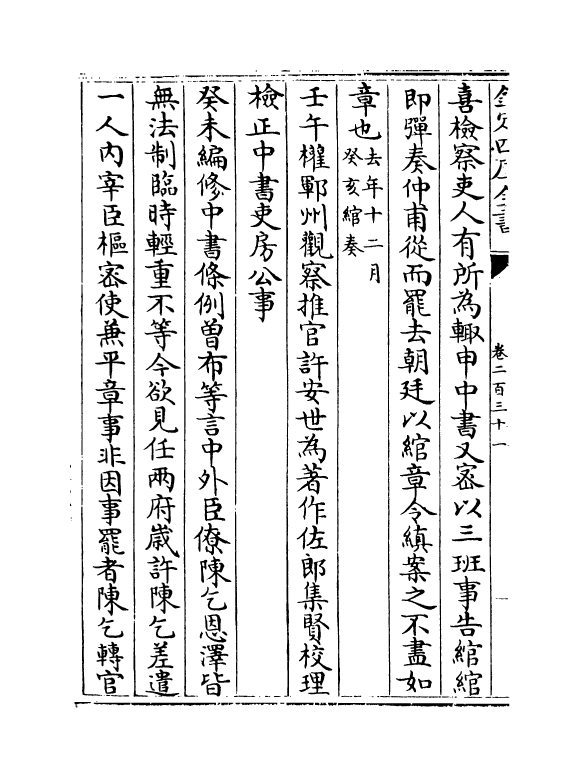 欽定四庫全書
卷二百三十一
喜檢察吏人有所為輙申中書又密以三班事告綰綰
即彈奏仲甫從而罷去朝廷以綰章令縝案之不盡如
章也去年十二月癸亥綰奏
壬午櫂鄆州觀察推官許安世為著作佐郎集賢校理
檢正中書吏房公事
癸未編修中書條例曽布等言中外臣僚陳乞恩澤皆
無法制臨時輕重不等今欲見任兩府嵗許陳乞差遣
一人內宰臣樞密使兼平章事非因事罷者陳乞轉官